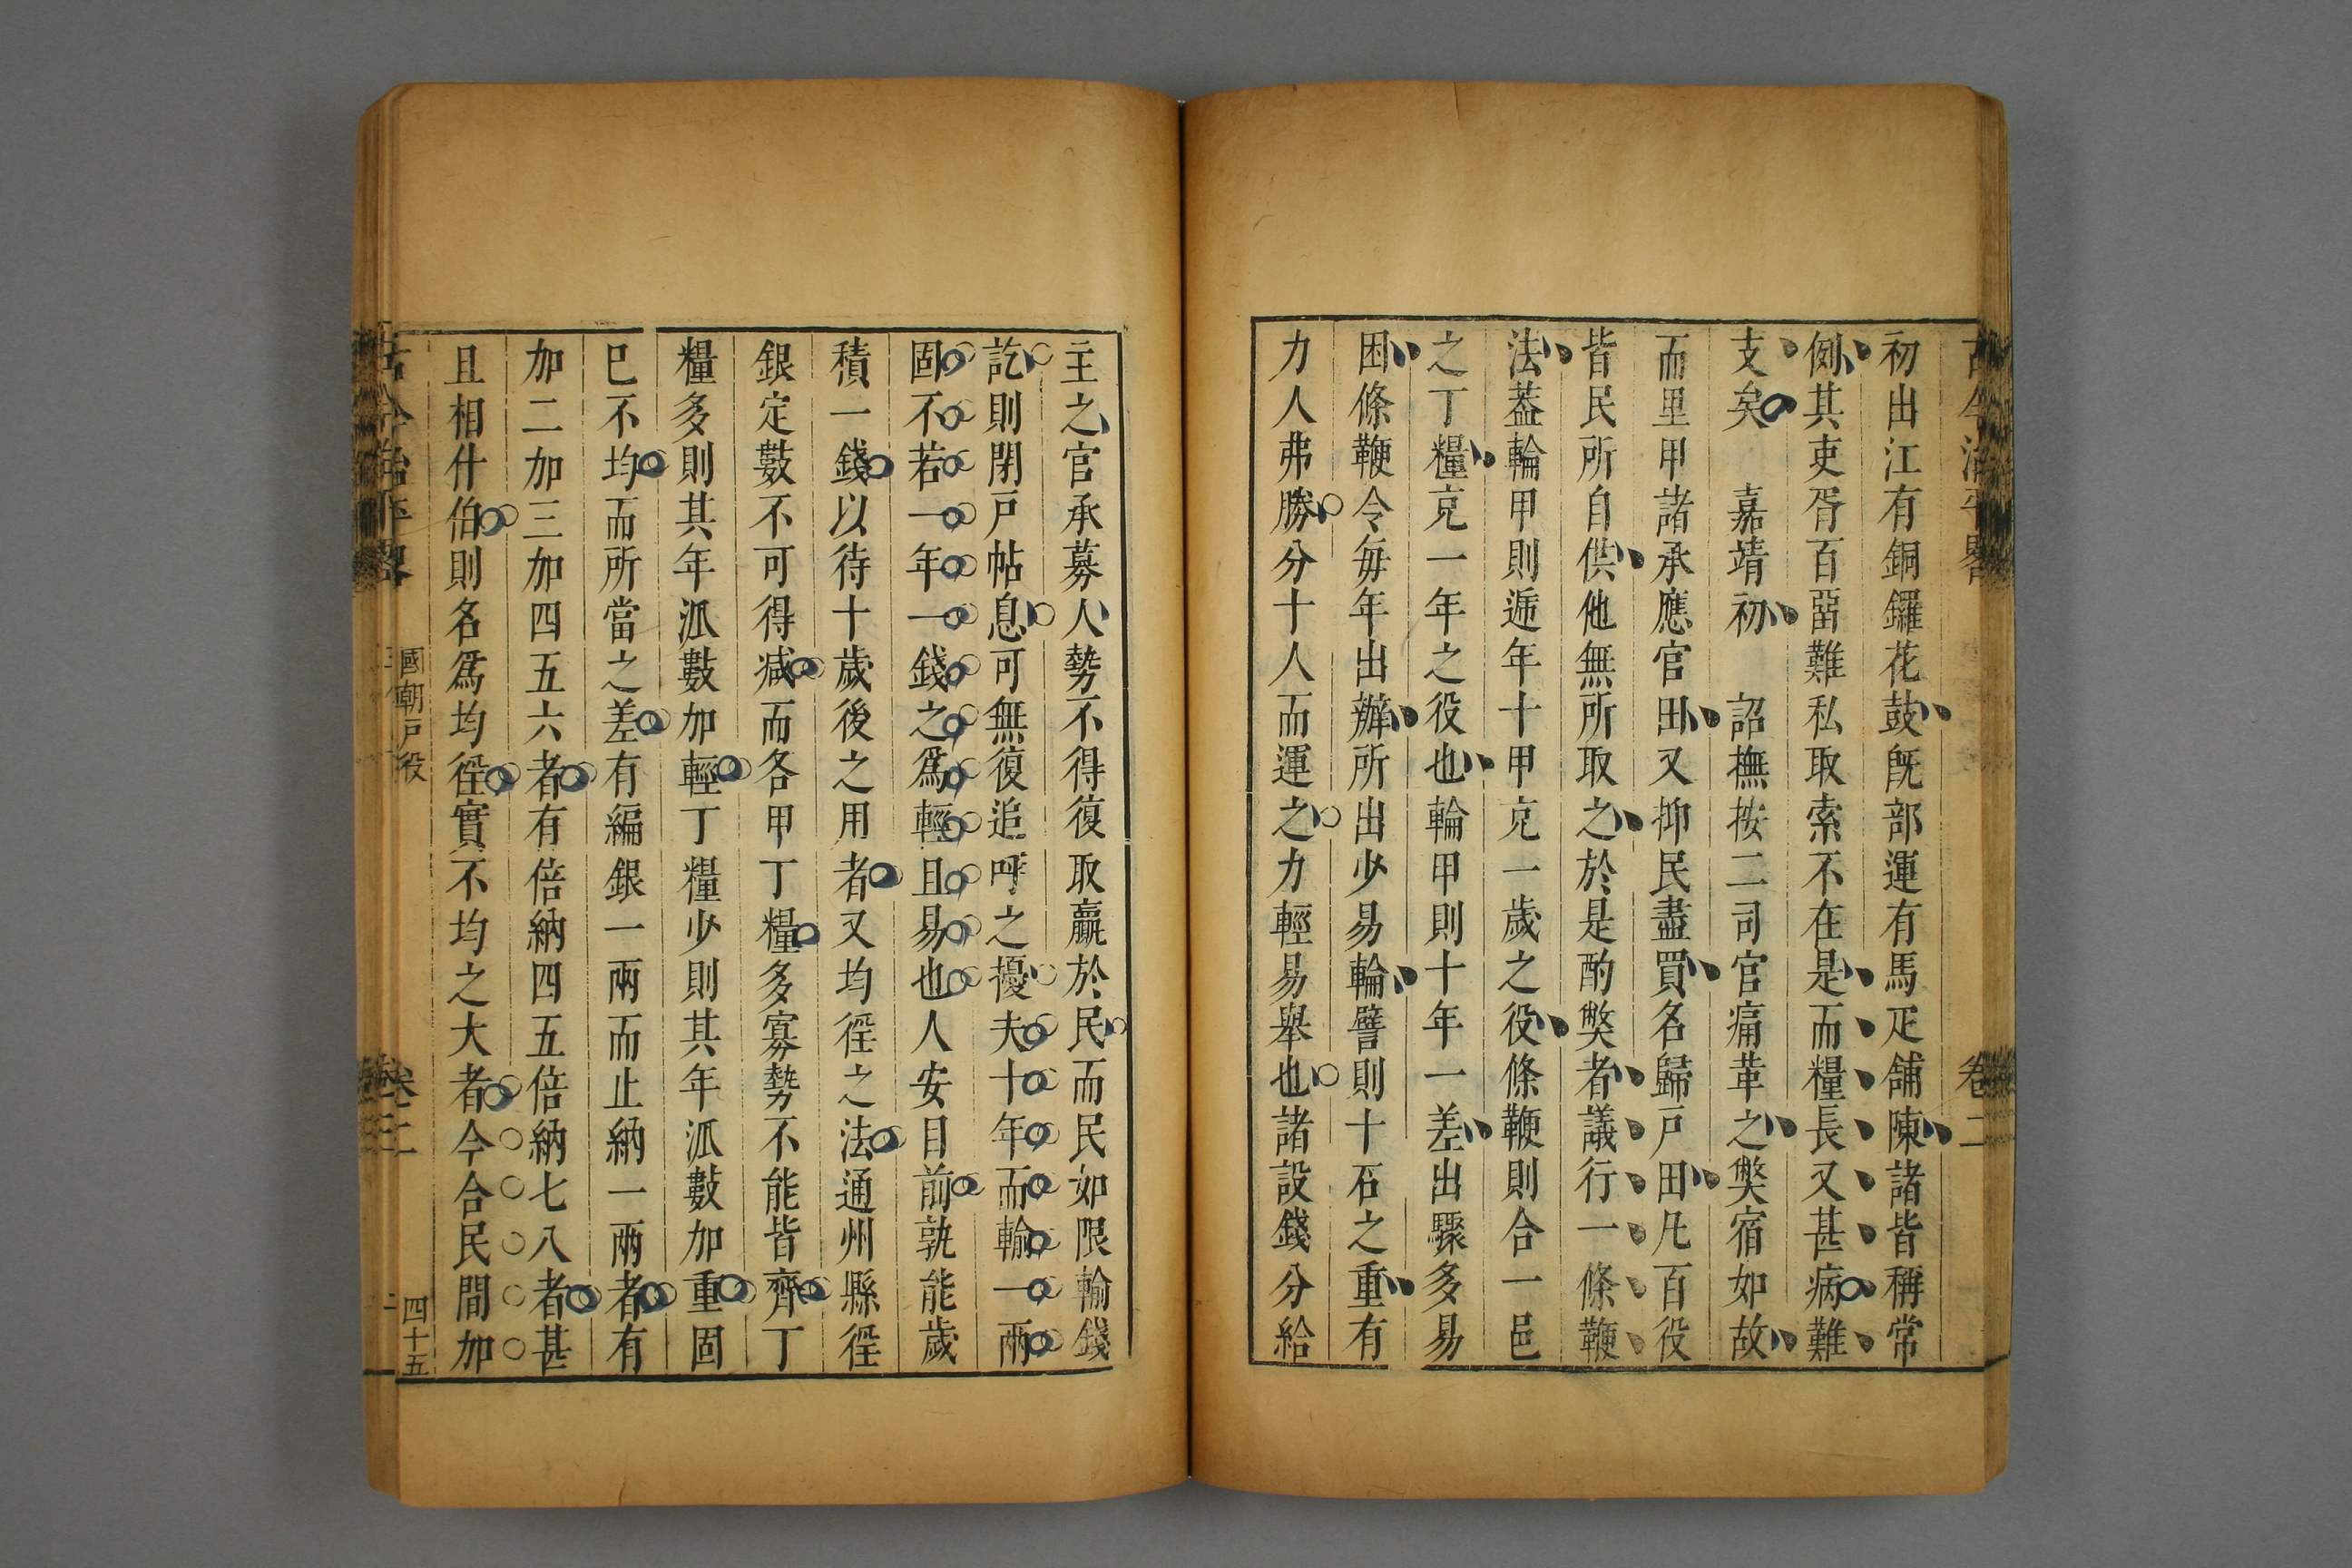 古今治平畧
卷二
初出江有銅鑼花鼓旣部運有馬疋舖陳諸皆稱常
例其吏胥百畨難私取索不在是而糧長又甚病難
支矣 嘉靖初 詔撫按二司官痛革之獘宿如故
而里甲諸承應官田又抑民盡買名歸戸田凡百役
皆民所自供他無所取之於是酌獘者議行一條鞭
法葢輪甲則遞年十甲克一歲之役條鞭則合一邑
之丁糧克一年之役也輪甲則十年一差出驟多易
困條鞭令每年出辦所出少易輪譬則十石之重有
力人弗勝分十人而運之力輕易舉也諸設錢分給
主之官承募人勢不得復取贏於民而民如限輸錢
訖則閉戸帖息可無復追呼之擾夫十年而輸一兩
固不若一年一錢之爲輕且易也人安目前孰能歲
積一錢以待十歲後之用者又均徑之法通州縣徑
銀定數不可得減而各甲丁糧多寡勢不能皆齊丁
糧多則其年派數加輕丁糧少則其年派數加重固
巳不均而所當之差有編銀一兩而止納一兩者有
加二加三加四五六者有倍納四五倍納七八者甚
且相什伯則名爲均徑實不均之大者今合民間加
古今治平畧
國朝戸役
卷二
四十五